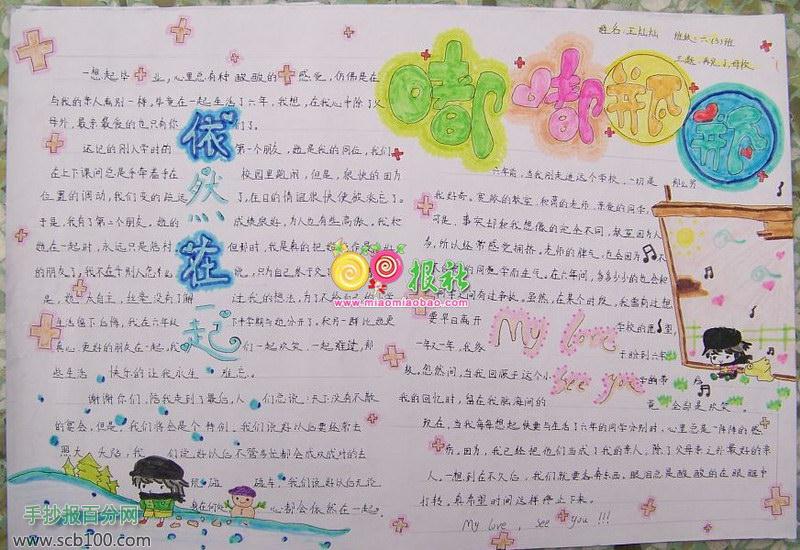 姓名:王灿灿 班级:六(3)班
主题:再见了,母校
嘟嘟瓶瓶
一想起毕业,心里总有种酸酸的感觉,仿佛是在
与我的亲人离别一样,毕竟在一起生活了六年,我想,在我心中除了父
母外,最亲最爱的也只有你们了。
还记的刚入学时的第一个朋友,她是我的同位,我们
在上下课间总是手牵着手在校园里跑闹,但是,很快的因为
位置的调动,我们变的疏远了,在日的情谊很快便被淡忘了。
于是,我有了第二个朋友。她的成绩很好,为人也有些高傲。我和
她在一起时,永远只是陪衬
但那时,我是真的把她
的朋友了,我不在乎别人怎样
说,只为自己
依然在一起
生活
真心,更好的朋友在一起,我们一起欢笑,一起难过,那
些生活快乐的让我永生难忘。
谢谢你们,陪我走到了最后,人们总说:天下没有不散
的宴会,但是,我们将会是个特例。我们说好以后要经常去
们说好以后不管多忙都会成双成对的去
我们说好以后无论
身在何处,心都会依然在一起。
六年前,当我刚走进这个学校,一切是那么另
我好奇。宽敞的教室,和蔼的老师,亲爱的同学,
可是,事实却和我想像的完全不同,教室因为人
多,所以经常感觉拥挤。老师的脾气,也会因为
的同学而生气。在六年间,多多少少的也会和
同学之间有过争执。虽然,在某个时段,我需有过想
要早日离开学校的
My love
see you
一年又一年,我终于盼到六年
级,忽然间,当我回顾于这个小
我的回忆时,留在我脑海间的竟会却是欢笑。
现在,当我每每想起快要与生活了六年的同学分别时,心里总是一阵阵的悲
伤。因为,我已经把他们当成了我的亲人。除了父母亲之外最好的亲
人。一想到在不久后,我们就要各奔东西。眼泪总是酸酸的在眼眶中
打转。真希望时间这样停止下来。
My love, see you !!!
报社
www.miaomiaobao.com
手抄报百分网
www.scb100.com